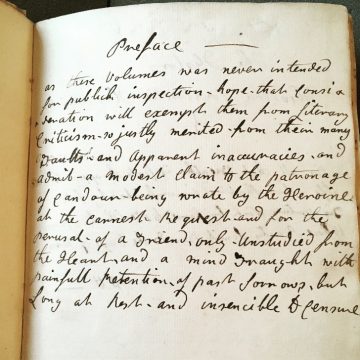 Preface
as these Volumes was never intended
for publick inspection - hope that Consi
deration will exempt them from Literary
Criticism - so justly merited from their many
Faults - and Apparent inaccuracies - and
admit - a modest Claim to the patronage
of Candour - being wrote by the Heroine
at the earnest Request - and for the
perusal - of a Friend, only - Unstudied from
the Heart, and a mind fraught with
painfull retention - of past sorrows, but
Long at Rest - and insencible to Censure